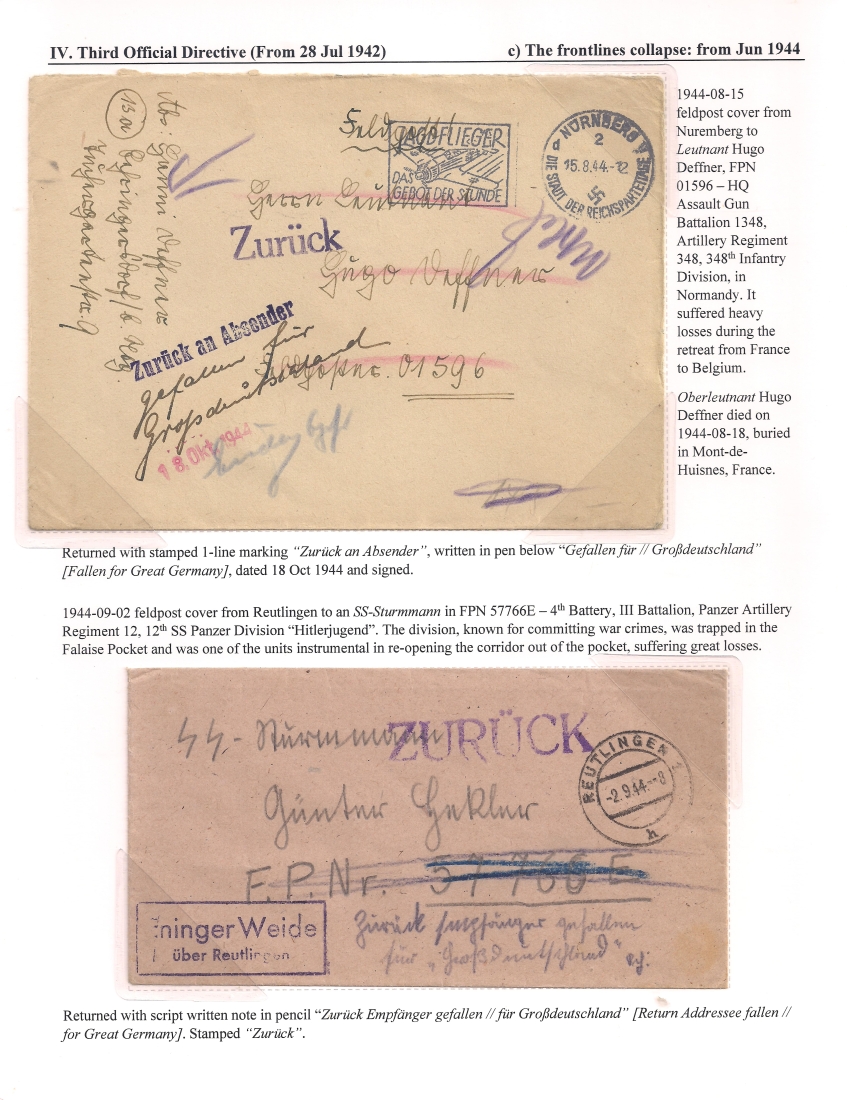 IV. Third Official Directive (From 28 Jul 1942)
c) The frontlines collapse: from Jun 1944
Abs: Hanni Deffner
13a
Feldpost
JAGDFLIEGER
DAS
GEBOT DER STUNDE
NÜRNBERG
2
d
15.8.44.-12
DIE STADT DER REICHSPARTEITAGE
Herrn Leutnant
Zurück
Hugo Deffner
Zurück an Absender
gefallen für
Großdeutschland
Feldpostnr. 01596
18. Okt. 1944
1944-08-15
feldpost cover from
Nuremberg to
Leutnant Hugo
Deffner, FPN
01596 – HQ
Assault Gun
Battalion 1348,
Artillery Regiment
348, 348th Infantry
Division, in
Normandy. It
suffered heavy
losses during the
retreat from France
to Belgium.
Oberleutnant Hugo
Deffner died on
1944-08-18, buried
in Mont-de-
Huisnes, France.
Returned with stamped 1-line marking "Zurück an Absender", written in pen below "Gefallen für // Großdeutschland"
[Fallen for Great Germany], dated 18 Oct 1944 and signed.
1944-09-02 feldpost cover from Reutlingen to an SS-Sturmmann in FPN 57766E – 4th Battery, III Battalion, Panzer Artillery
Regiment 12, 12th SS Panzer Division "Hitlerjugend". The division, known for committing war crimes, was trapped in the
Falaise Pocket and was one of the units instrumental in re-opening the corridor out of the pocket, suffering great losses.
SS.-Sturmmann
ZURÜCK
REUTLINGEN 1
-2.9.44.--8
h
Günter Hekler
F.P.Nr. 57766 E
ninger Weide
über Reutlingen
Zurück Empfänger gefallen
für „Großdeutschland"
Returned with script written note in pencil "Zurück Empfänger gefallen // für Großdeutschland" [Return Addressee fallen //
for Great Germany]. Stamped "Zurück".